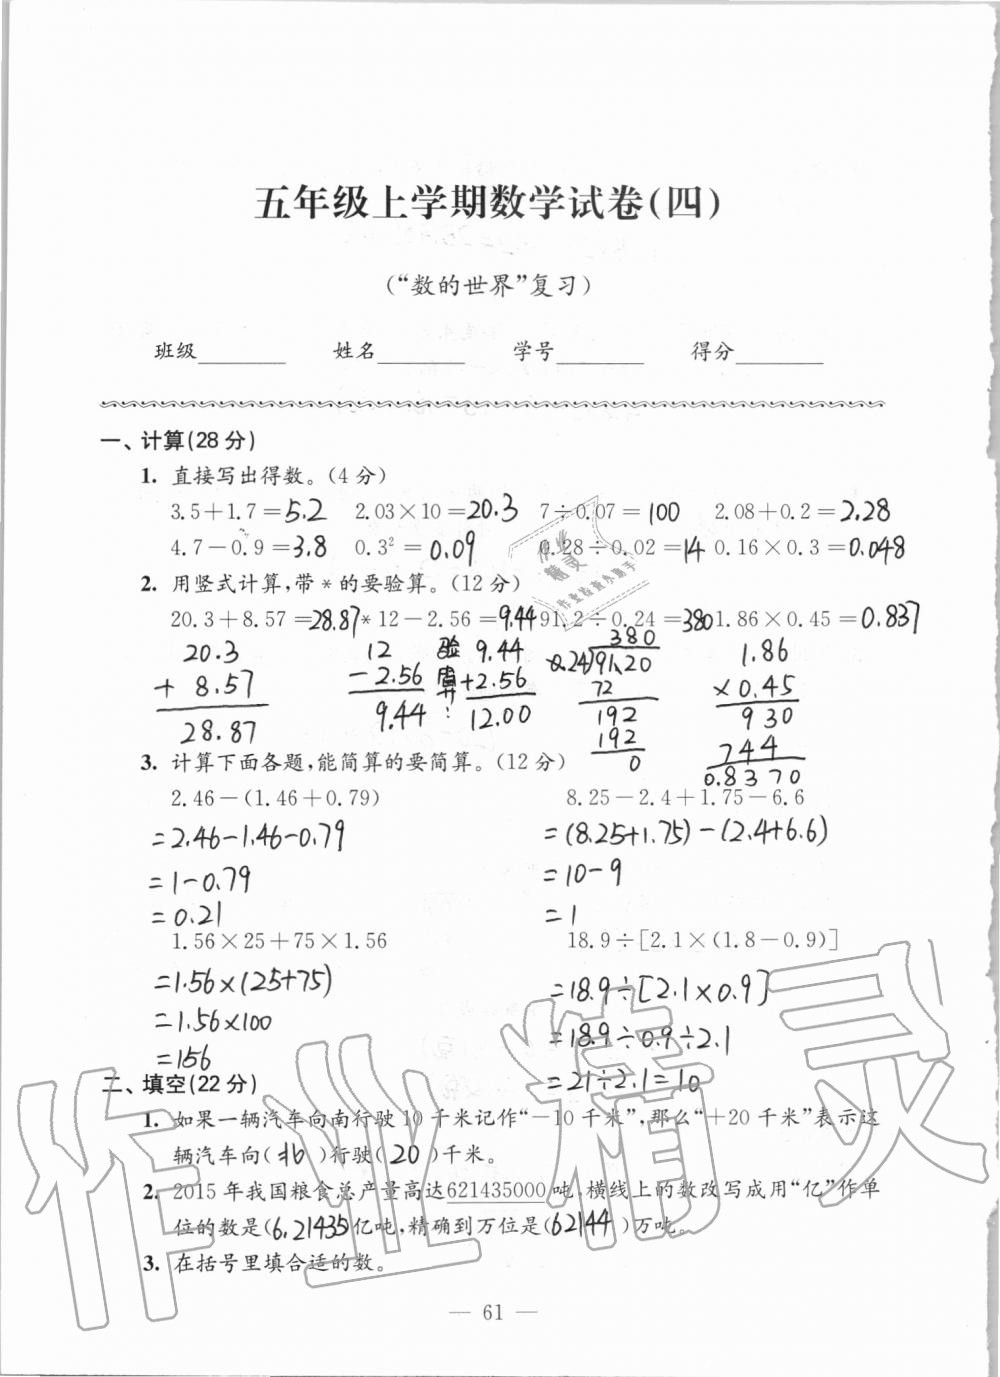 五年级上学期数学试卷(四)
(“数的世界”复习)
班级______ 姓名______ 学号______ 得分______
一、计算(28分)
1. 直接写出得数。(4分)
3.5+1.7=5.2 2.03×10=20.3 7÷0.07=100 2.08+0.2=2.28
4.7-0.9=3.8 0.3²=0.09 0.28÷0.02=14 0.16×0.3=0.048
2. 用竖式计算,带*的要验算。(12分)
20.3+8.57=28.87 *12-2.56=9.44 91.2÷0.24=380 1.86×0.45=0.837
20.3 12 验 9.44 380 1.86
+ 8.57 -2.56 算 +2.56 0.24)91.20 ×0.45
28.87 9.44 : 12.00 72 930
192 744
192 0.8370
0
3. 计算下面各题,能简算的要简算。(12分)
2.46-(1.46+0.79) 8.25-2.4+1.75-6.6
=2.46-1.46-0.79 =(8.25+1.75)-(2.4+6.6)
=1-0.79 =10-9
=0.21 =1
1.56×25+75×1.56 18.9÷[2.1×(1.8-0.9)]
=1.56×(25+75) =18.9÷[2.1×0.9]
=1.56×100 =18.9÷0.9÷2.1
=156 =21÷2.1=10
二、填空(22分)
1. 如果一辆汽车向南行驶10千米记作“-10千米”,那么“+20千米”表示这
辆汽车向(北)行驶(20)千米。
2. 2015年我国粮食总产量高达621435000吨,横线上的数改写成用“亿”作单
位的数是(6.21435)亿吨,精确到万位是(62144)万吨。
3. 在括号里填合适的数。
— 61 —
作业精灵
作业精灵
作业检查小助手